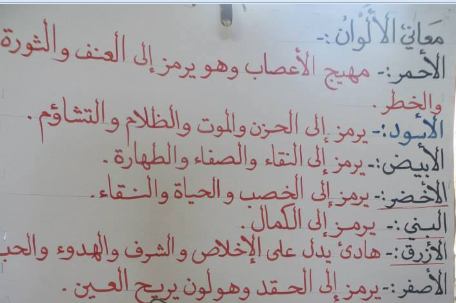 معاني الألوان :-
الأحمر :- مهيج الأعصاب وهو يرمز إلى العنف والثورة
والخطر .
الأسود :- يرمز إلى الحزن والموت والظلام والتشاؤم .
الأبيض :- يرمز إلى النقاء والصفاء والطهارة .
الأخضر :- يرمز إلى الخصب والحياة والنقاء .
البني :- يرمز إلى الكمال .
الأزرق :- هادئ يدل على الإخلاص والشرف والهدوء والحب
الأصفر :- يرمز إلى الحقد وهولون يريح العين .